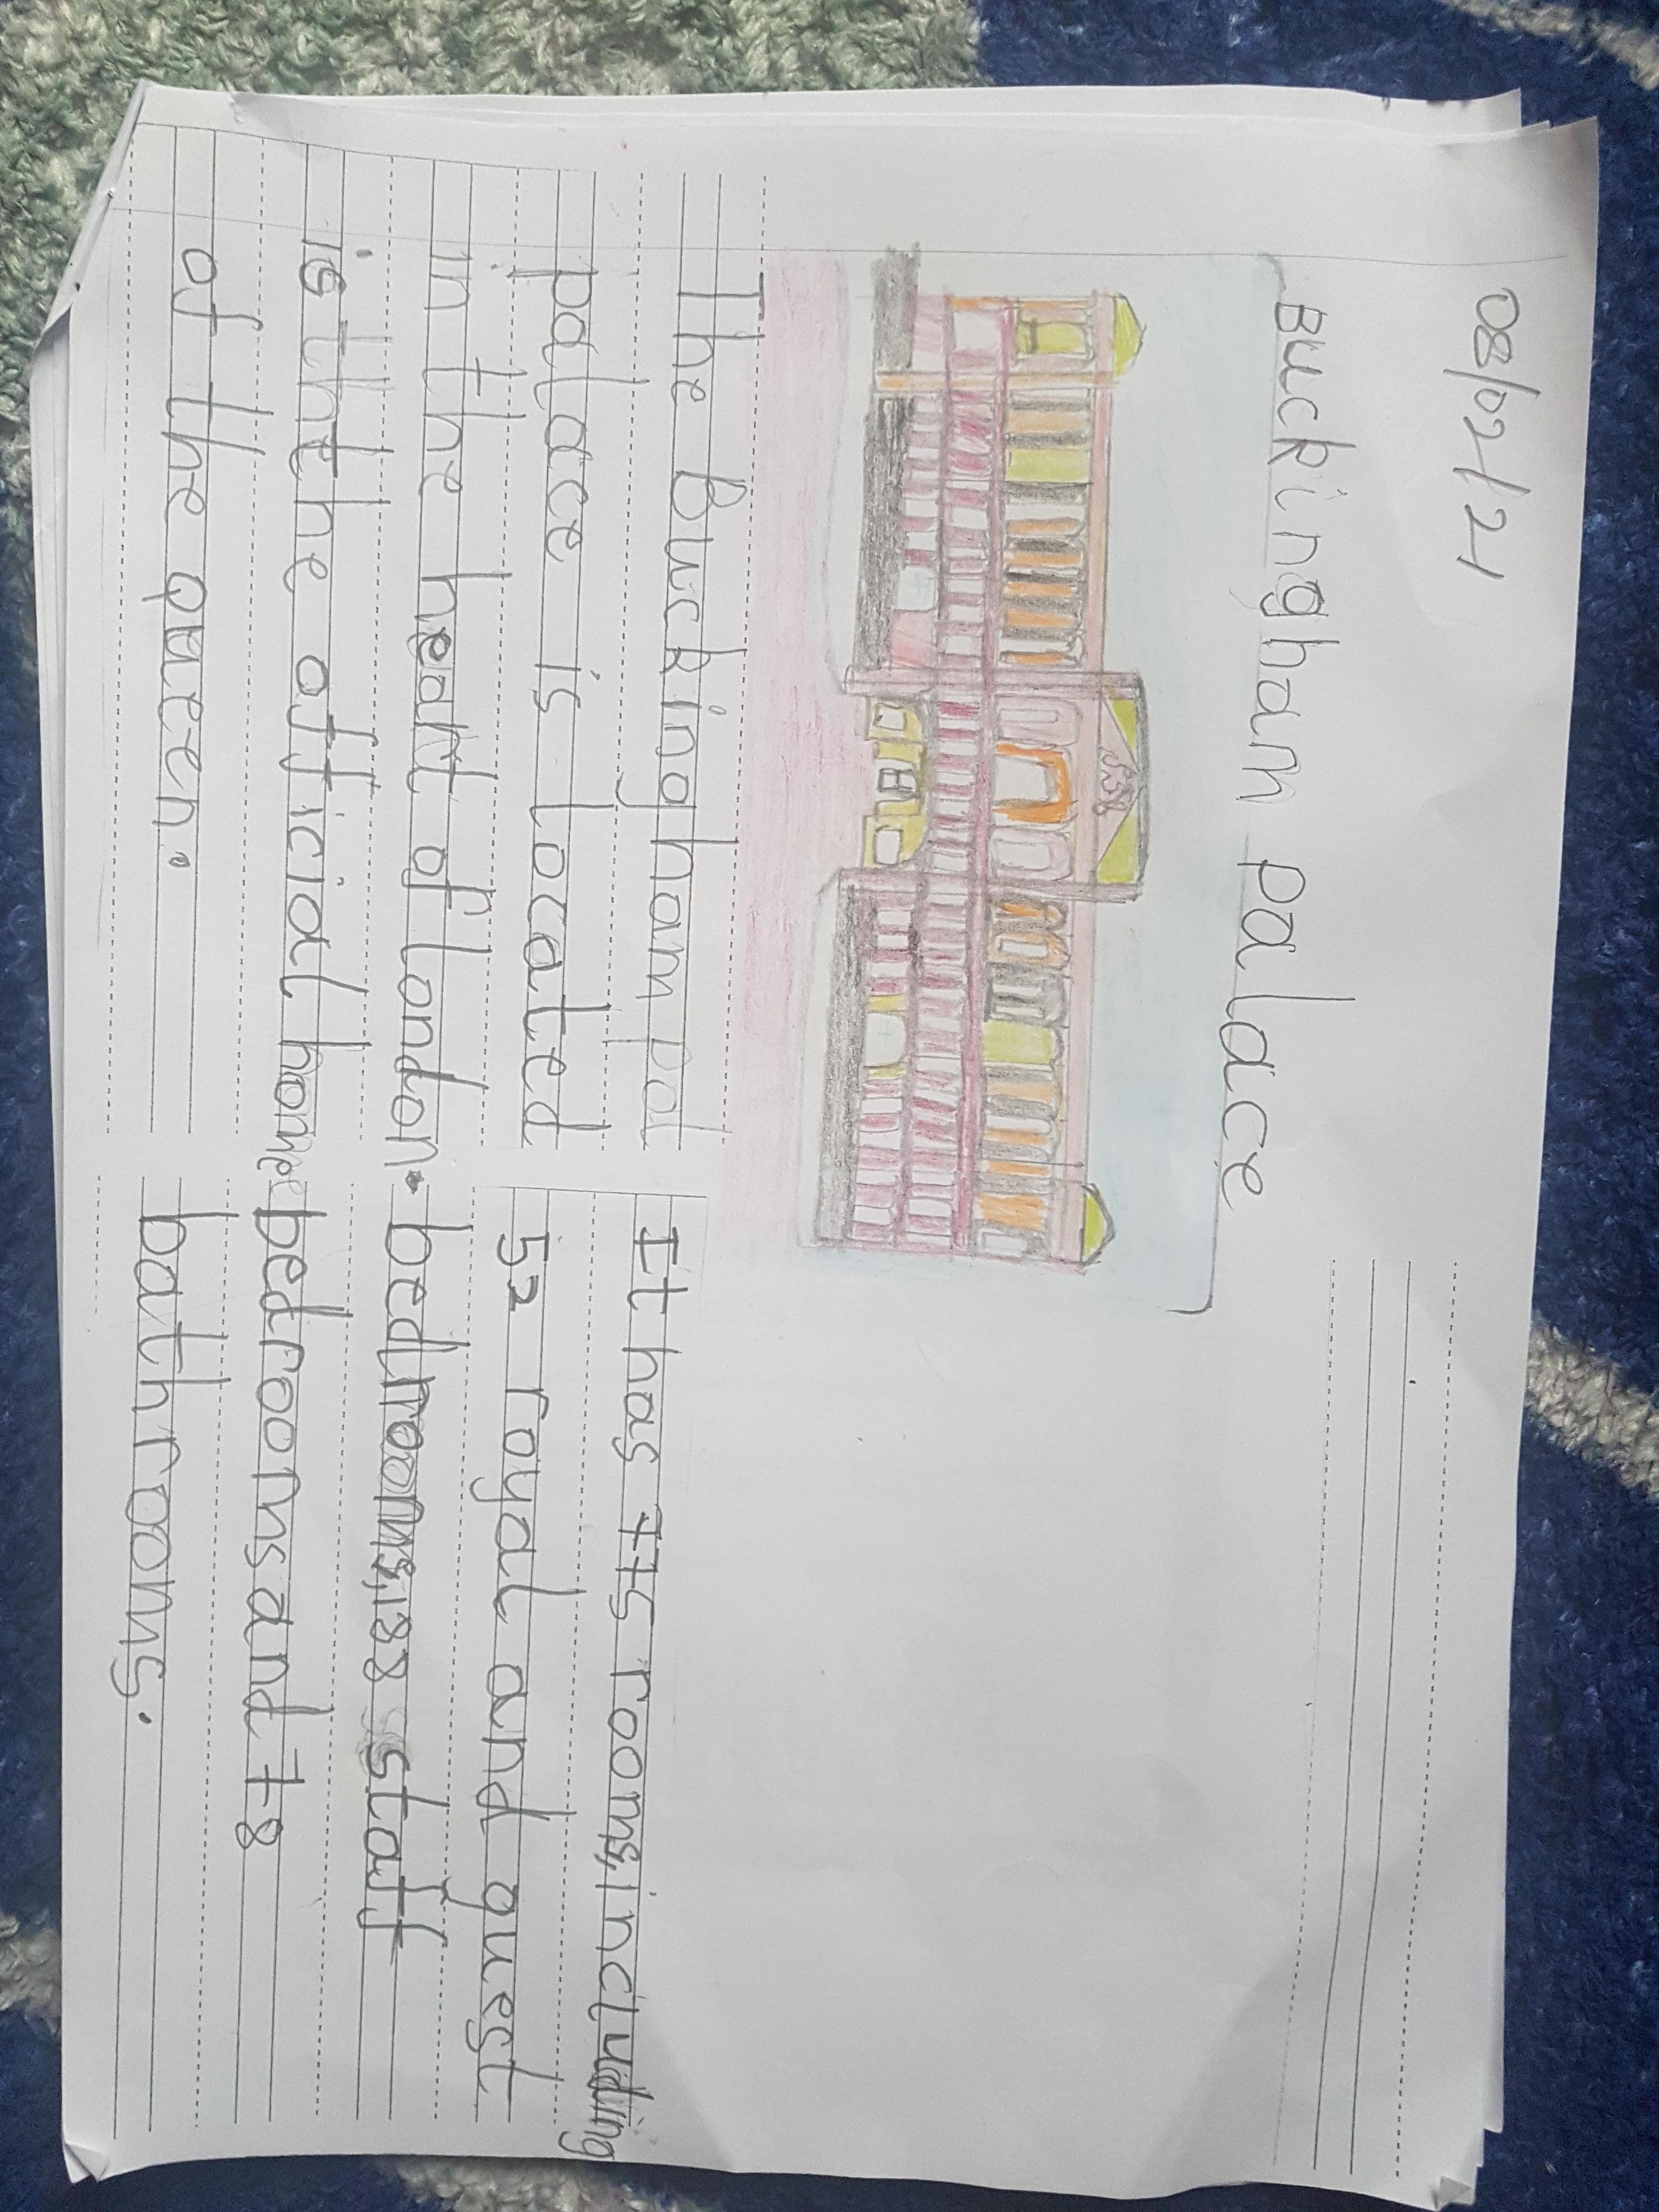 08/02/21
Buckingham palace
The Buckingham pal
palace is located
in the heart of london.
is the the official home
of the queen.
It has 775 rooms, including
52 royal and guest
bedrooms, 188 staff
bedrooms and 78
bathrooms.